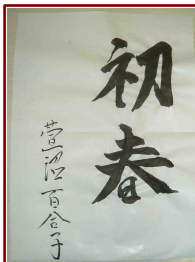 初春
萱沼百合子